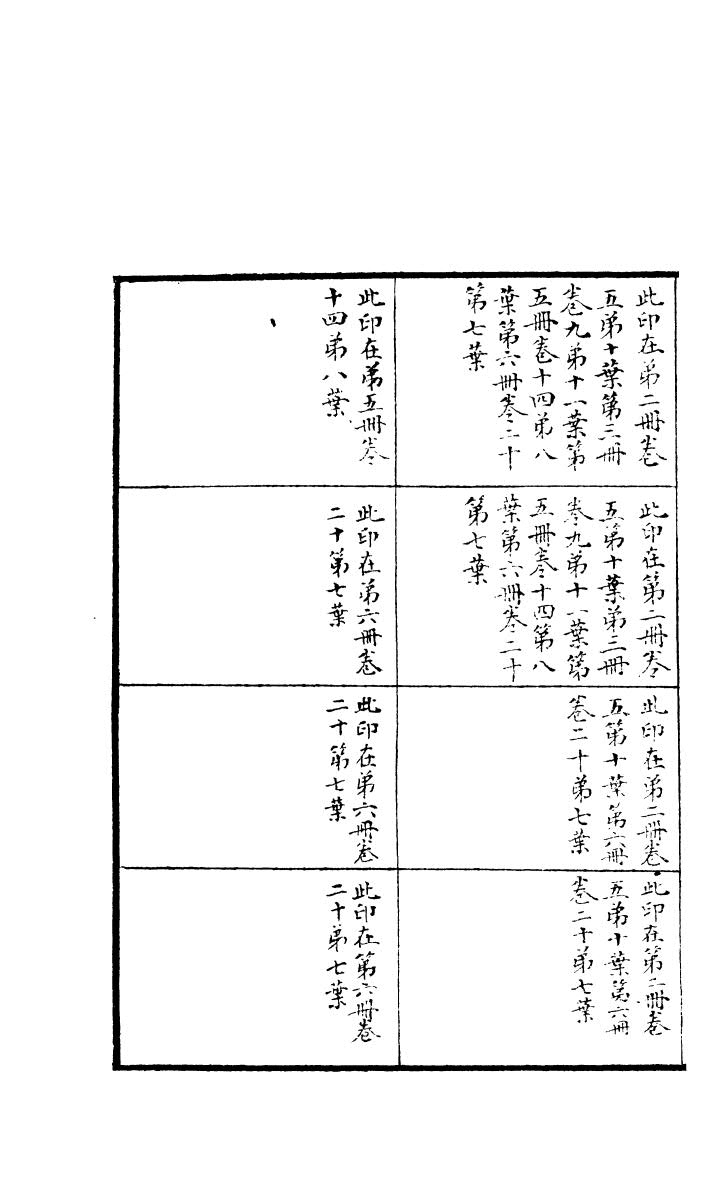 此印在第二冊卷
五第十葉第三冊
卷九第十一葉第
五冊卷十四第八
葉第六冊卷二十
第七葉
此印在第二冊卷
五第十葉第三冊
卷九第十一葉第
五冊卷十四第八
葉第六冊卷二十
第七葉
此印在第二冊卷
五第十葉第六冊
卷二十第七葉
此印在第二冊卷
五第十葉第六冊
卷二十第七葉
此印在第五冊卷
十四第八葉
此印在第六冊卷
二十第七葉
此印在第六冊卷
二十第七葉
此印在第六冊卷
二十第七葉